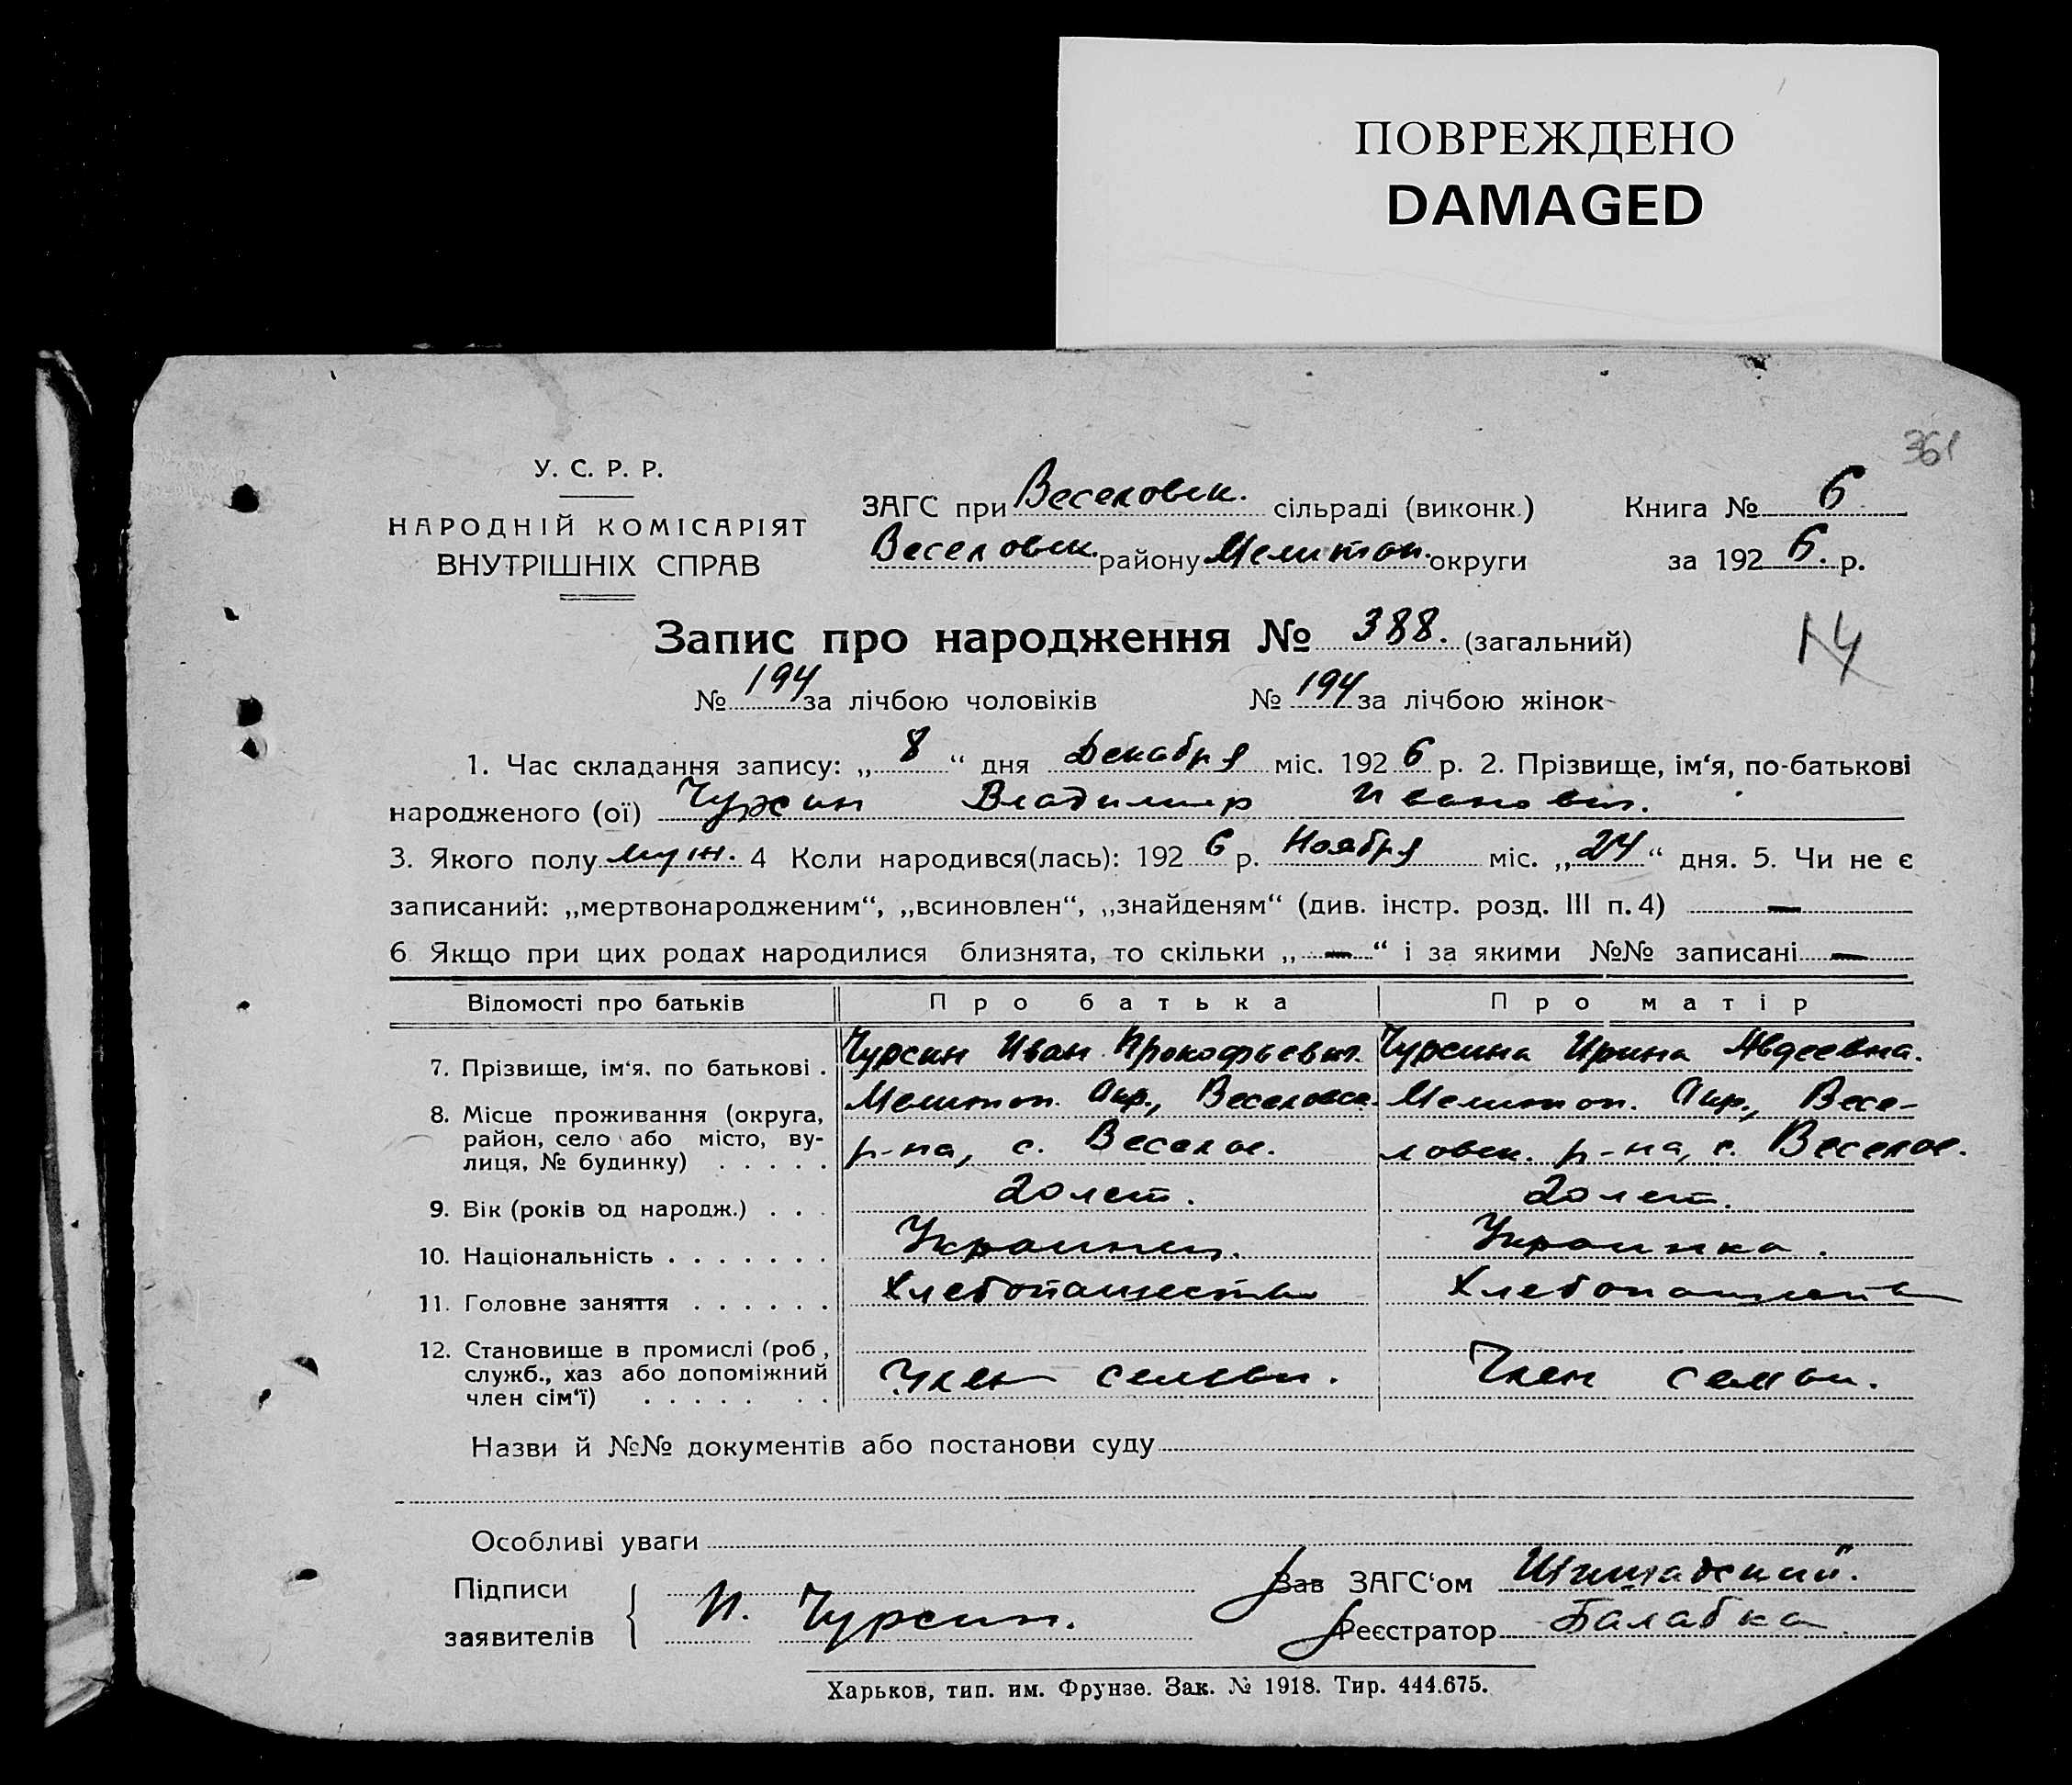 ПОВРЕЖДЕНО
DAMAGED
361
У. С. Р. Р.
НАРОДНІЙ КОМІСАРІЯТ
ВНУТРІШНІХ СПРАВ
ЗАГС при Веселовск. сільраді (виконк.)
Веселовск. району Мелитоп. округи
Книга № 6
за 192 6. р.
Запис про народження № 388. (загальний)
14
№ 194 за лічбою чоловіків № 194 за лічбою жінок
1. Час складання запису: „ 8 “ дня Декабря міс. 192 6 р. 2. Прізвище, ім‘я, по-батькові
народженого (ої) Чурсин Владимир Иванович.
3. Якого полу муж. 4 Коли народився(лась): 192 6 р. Ноября міс. „ 24 “ дня. 5. Чи не є
записаний: „мертвонародженим“, „всиновлен“, „знайденям“ (див. інстр. розд. III п. 4) —
6 Якщо при цих родах народилися близнята, то скільки „ — “ і за якими №№ записані —
Відомості про батьків Про батька Про матір
7. Прізвище, ім‘я. по батькові . Чурсин Иван Прокофьевич. Чурсина Ирина Авдеевна.
8. Місце проживання (округа, Мелитоп. Окр., Веселовск. Мелитоп. Окр., Весе-
район, село або місто, ву-
лиця, № будинку) . . . . . р-на, с. Веселое. ловск. р-на, с. Веселое.
9. Вік (років од народж.) . . . 20 лет. 20 лет.
10. Національність . . . . . . . Украинец. Украинка.
11. Головне заняття . . . . . . Хлебопашество Хлебопашество
12. Становище в промислі (роб,
служб., хаз або допоміжний Член семьи. Член семьи.
член сім‘ї) . . . . . . .
Назви й №№ документів або постанови суду
Особливі уваги
Підписи
заявителів
И. Чурсин.
Зав ЗАГС‘ом
Реєстратор Балабка
Харьков, тип. им. Фрунзе. Зак. № 1918. Тир. 444.675.